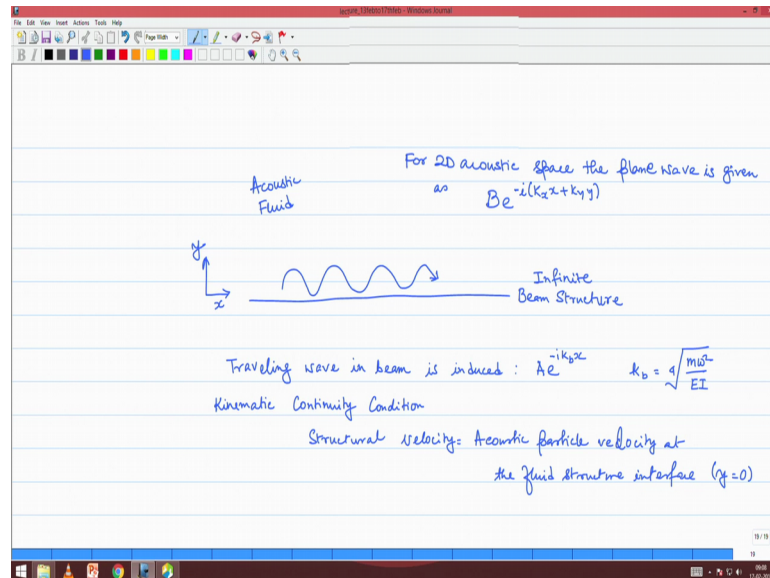 lecture_13febto17thfeb - Windows Journal
File Edit View Insert Actions Tools Help
Page Width
B I
For 2D acoustic space the plane wave is given
as Be^{-i(k_x x + k_y y)}
Acoustic
Fluid
y
x
Infinite
Beam Structure
Traveling wave in beam is induced : Ae^{-ik_b x} k_b = ∜(mω²/EI)
Kinematic Continuity Condition
Structural velocity = Acoustic particle velocity at
the fluid structure interface (y=0)
19 / 19
19
09:08